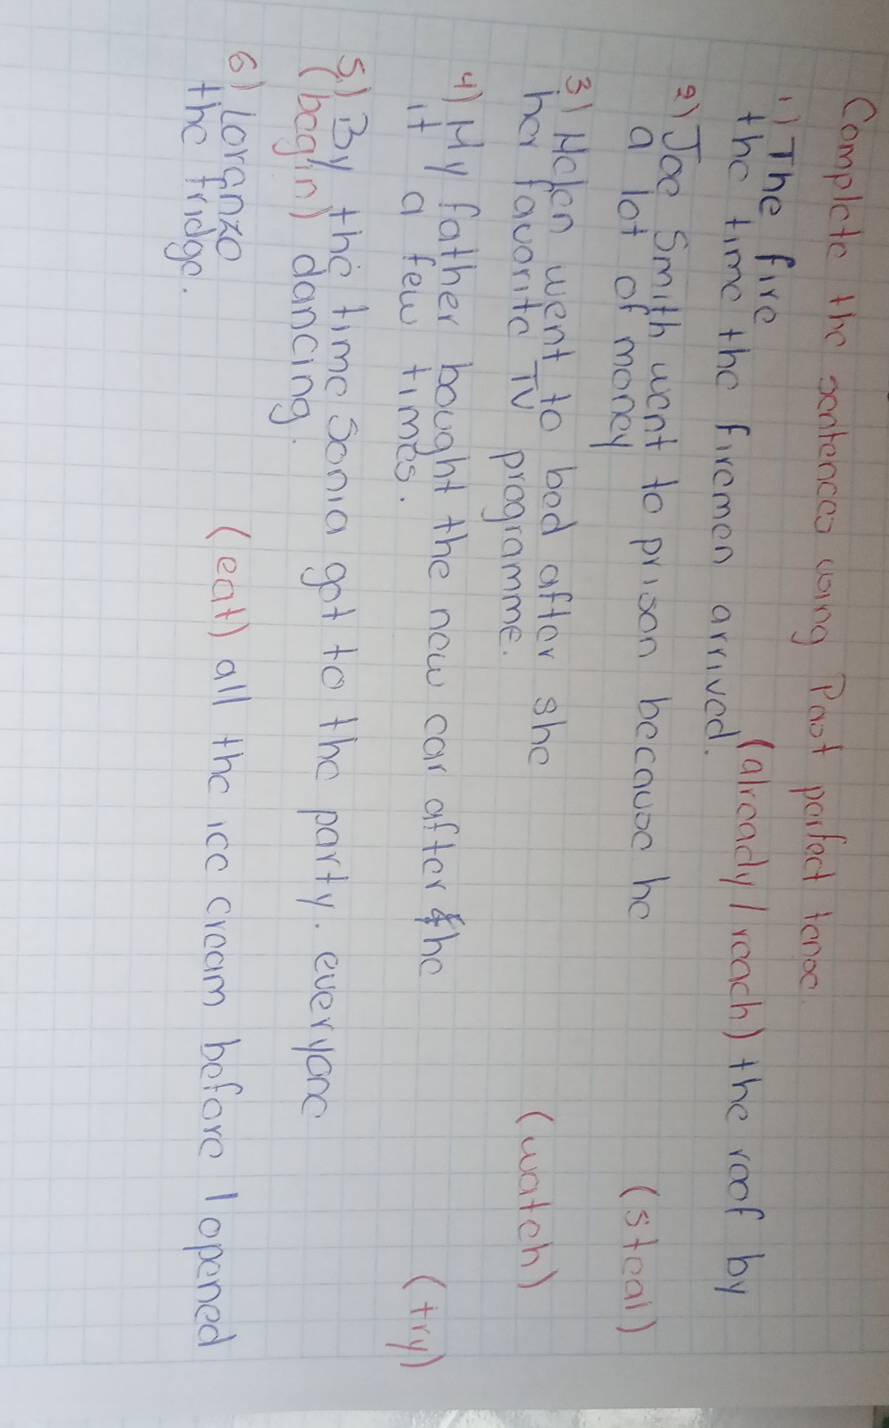 Complete the sentences using Past perfect tense.
1) The fire (already / reach) the roof by
the time the firemen arrived.
2) Joe Smith went to prison because he (steal)
a lot of money
3) Helen went to bed after she (watch)
her favorite TV programme.
4) My father bought the new car after he (try)
it a few times.
5) By the time Sonia got to the party. everyone
(begin) dancing.
6) Lorenzo (eat) all the ice cream before I opened
the fridge.